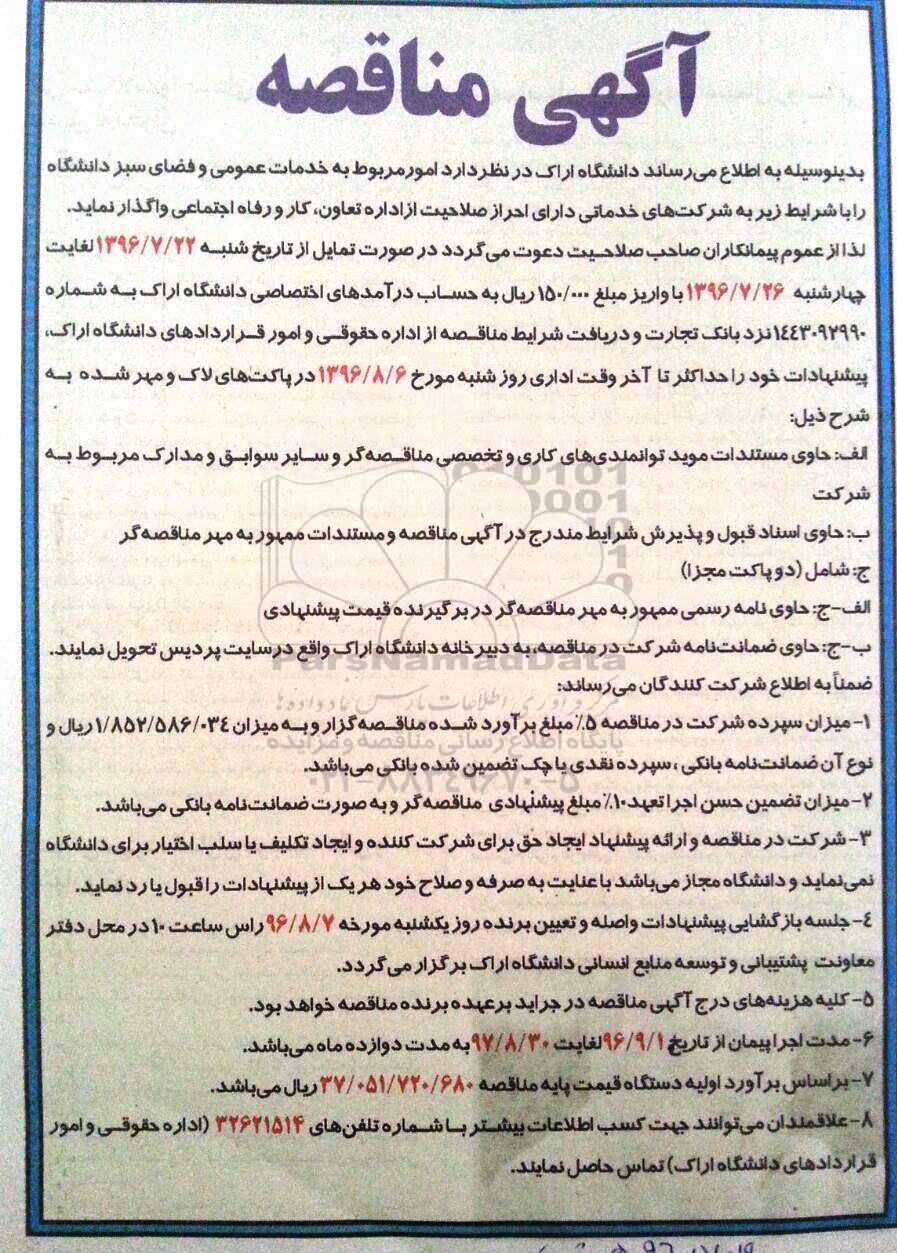 آگهی مناقصه
بدینوسیله به اطلاع می‌رساند دانشگاه اراک در نظر دارد امور مربوط به خدمات عمومی و فضای سبز دانشگاه
را با شرایط زیر به شرکت‌های خدماتی دارای احراز صلاحیت از اداره تعاون، کار و رفاه اجتماعی واگذار نماید.
لذا از عموم پیمانکاران صاحب صلاحیت دعوت می‌گردد در صورت تمایل از تاریخ شنبه ۱۳۹۶/۷/۲۲ لغایت
چهارشنبه ۱۳۹۶/۷/۲۶ با واریز مبلغ ۱۵۰/۰۰۰ ریال به حساب درآمدهای اختصاصی دانشگاه اراک به شماره
۱۴۴۳۰۹۲۹۹۰ نزد بانک تجارت و دریافت شرایط مناقصه از اداره حقوقی و امور قراردادهای دانشگاه اراک،
پیشنهادات خود را حداکثر تا آخر وقت اداری روز شنبه مورخ ۱۳۹۶/۸/۶ در پاکت‌های لاک و مهر شده به
شرح ذیل:
الف: حاوی مستندات موید توانمندی‌های کاری و تخصصی مناقصه‌گر و سایر سوابق و مدارک مربوط به
شرکت
ب: حاوی اسناد قبول و پذیرش شرایط مندرج در آگهی مناقصه و مستندات ممهور به مهر مناقصه‌گر
ج: شامل (دو پاکت مجزا)
الف-ج: حاوی نامه رسمی ممهور به مهر مناقصه‌گر در برگیرنده قیمت پیشنهادی
ب-ج: حاوی ضمانت‌نامه شرکت در مناقصه، به دبیرخانه دانشگاه اراک واقع در سایت پردیس تحویل نمایند.
ParsNamadData
ضمناً به اطلاع شرکت کنندگان می‌رساند:
مرکز فرآوری اطلاعات پارس نماد داده‌ها
۱- میزان سپرده شرکت در مناقصه ۵٪ مبلغ برآورد شده مناقصه‌گزار و به میزان ۱/۸۵۲/۵۸۶/۰۳۴ ریال و
پایگاه اطلاع رسانی مناقصه و مزایده
نوع آن ضمانت‌نامه بانکی، سپرده نقدی یا چک تضمین شده بانکی می‌باشد.
۰۲۱-۸۸۳۴۹۶۷۰-۵
۲- میزان تضمین حسن اجرا تعهد ۱۰٪ مبلغ پیشنهادی مناقصه‌گر و به صورت ضمانت‌نامه بانکی می‌باشد.
۳- شرکت در مناقصه و ارائه پیشنهاد ایجاد حق برای شرکت کننده و ایجاد تکلیف یا سلب اختیار برای دانشگاه
نمی‌نماید و دانشگاه مجاز می‌باشد با عنایت به صرفه و صلاح خود هر یک از پیشنهادات را قبول یا رد نماید.
۴- جلسه بازگشایی پیشنهادات واصله و تعیین برنده روز یکشنبه مورخه ۹۶/۸/۷ راس ساعت ۱۰ در محل دفتر
معاونت پشتیبانی و توسعه منابع انسانی دانشگاه اراک برگزار می‌گردد.
۵- کلیه هزینه‌های درج آگهی مناقصه در جراید برعهده برنده مناقصه خواهد بود.
۶- مدت اجرا پیمان از تاریخ ۹۶/۹/۱ لغایت ۹۷/۸/۳۰ به مدت دوازده ماه می‌باشد.
۷- براساس برآورد اولیه دستگاه قیمت پایه مناقصه ۳۷/۰۵۱/۷۲۰/۶۸۰ ریال می‌باشد.
۸- علاقمندان می‌توانند جهت کسب اطلاعات بیشتر با شماره تلفن‌های ۳۲۶۲۱۵۱۴ (اداره حقوقی و امور
قراردادهای دانشگاه اراک) تماس حاصل نمایند.